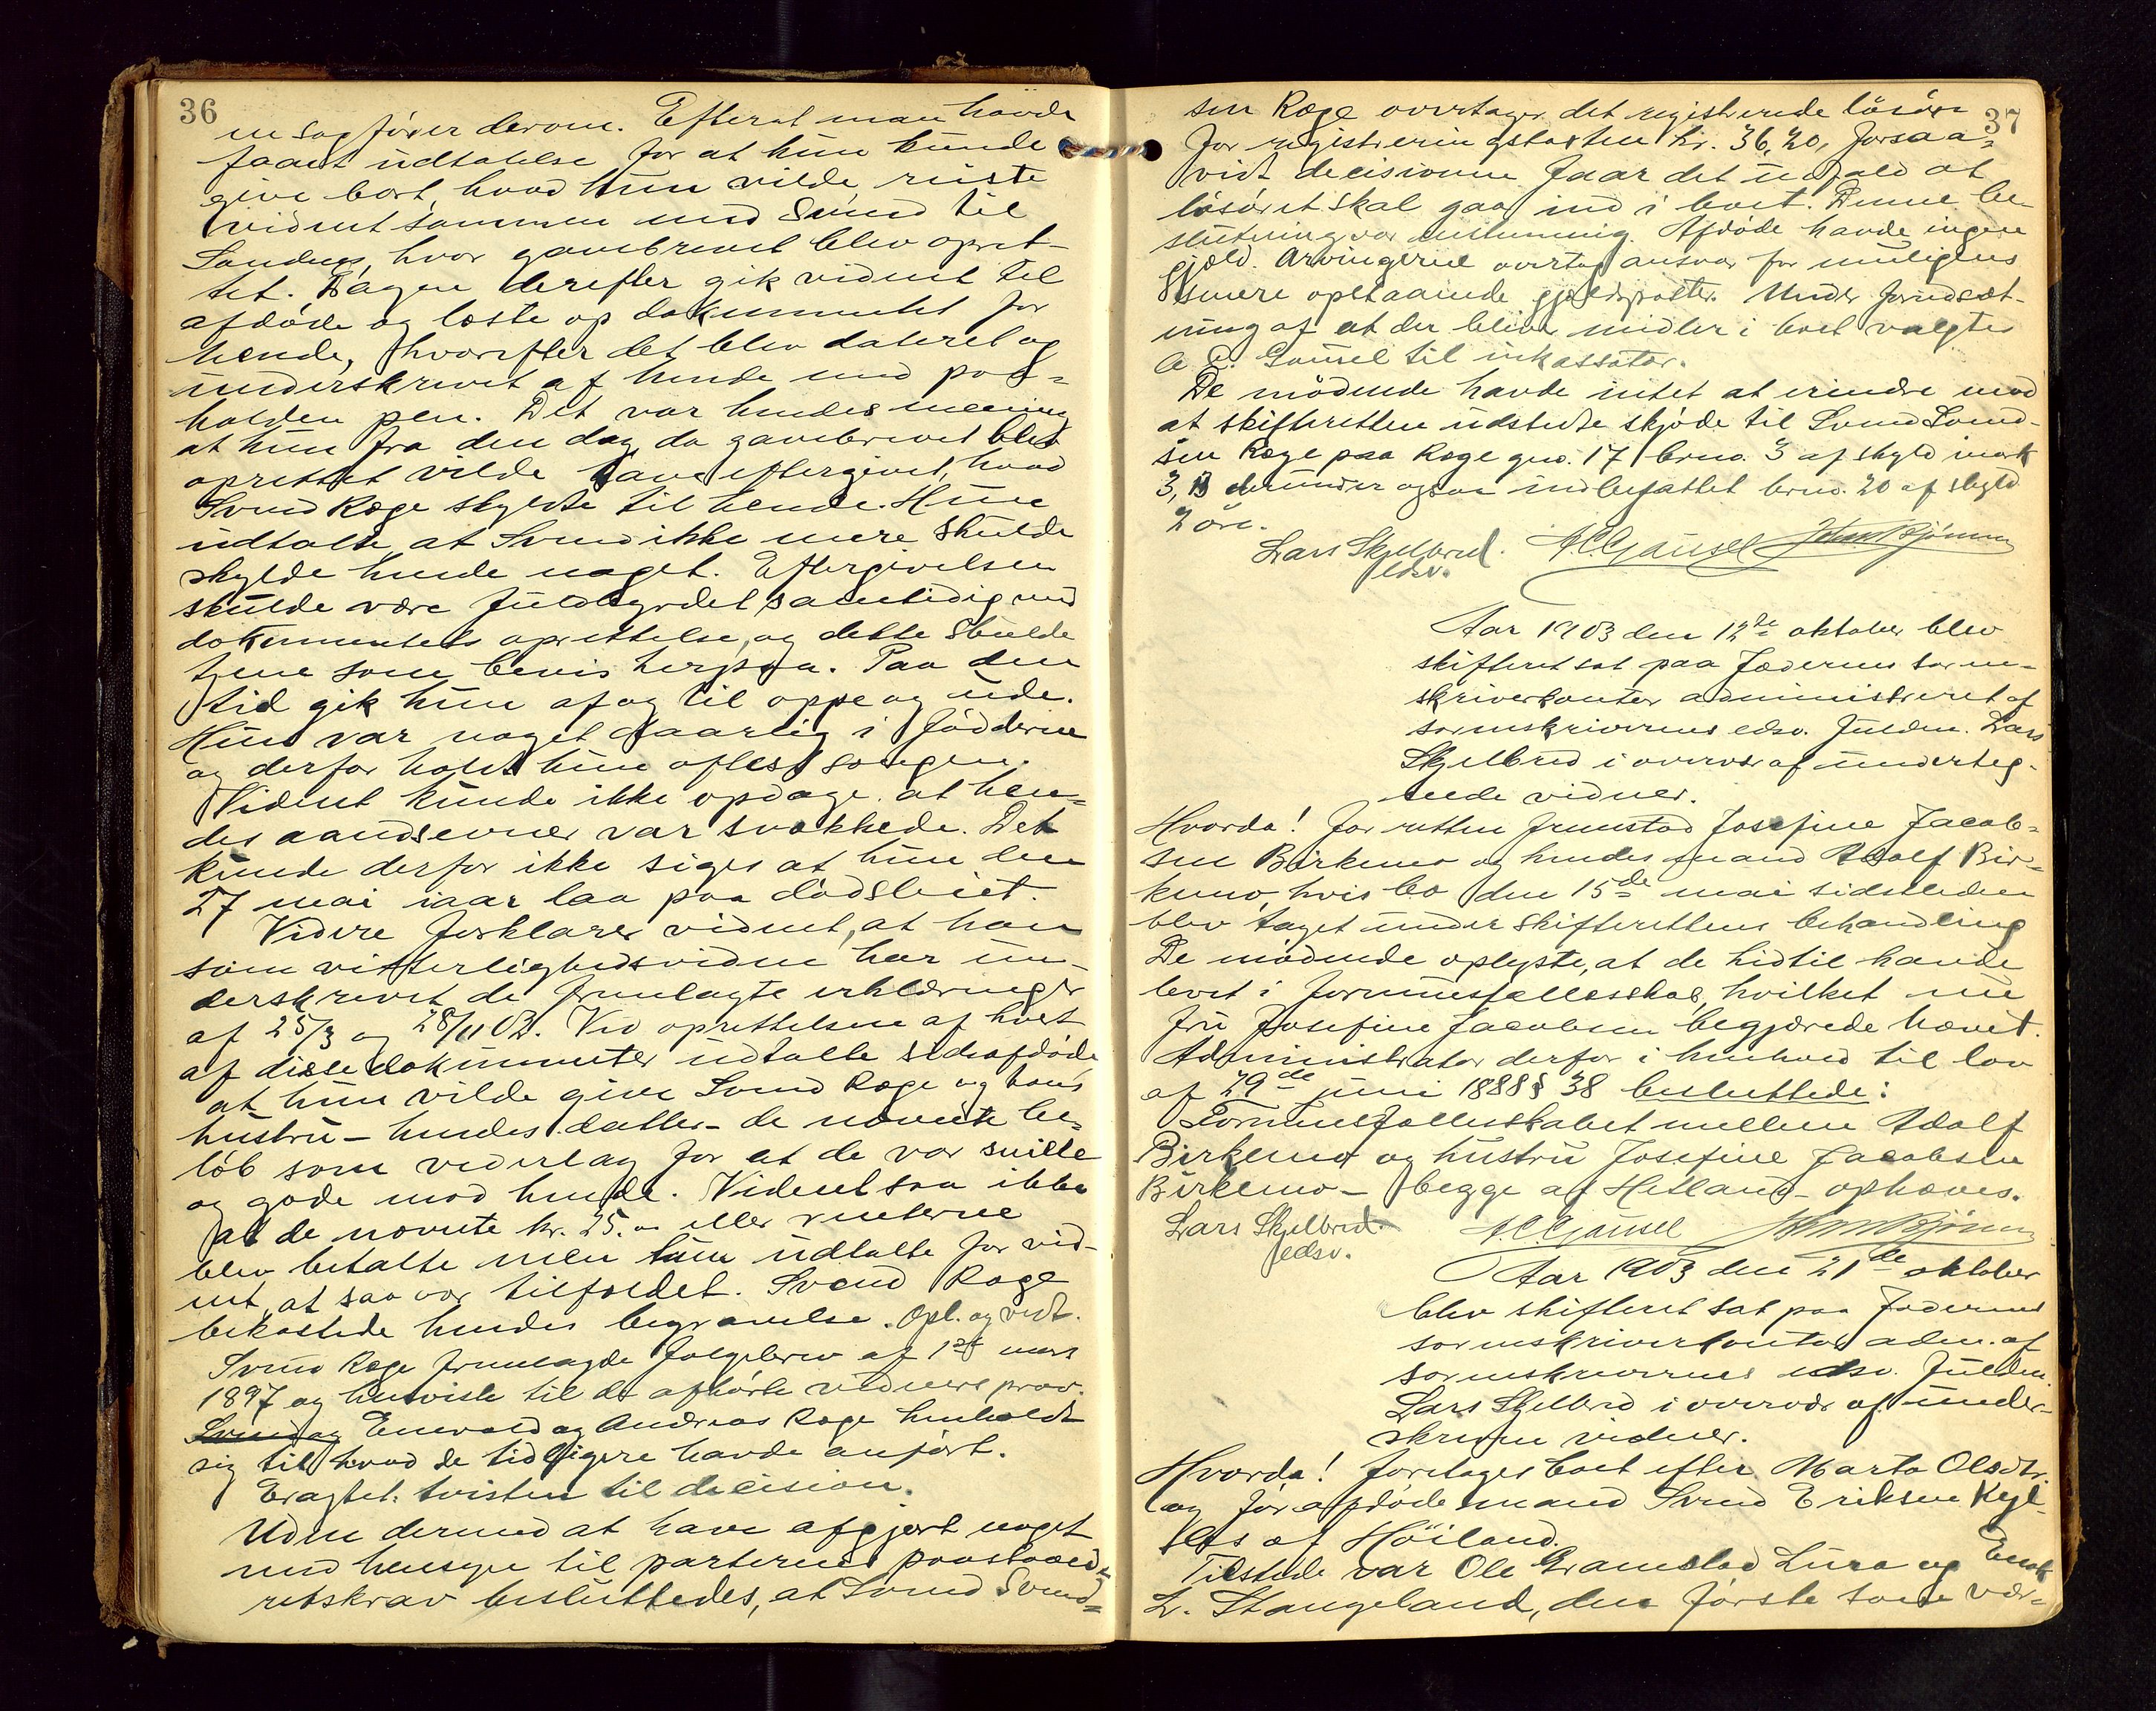 36
en sagfører derom. Efterat man havde
faaet udtalelse for at hun kunde
give bort, hvad hun vilde, reiste
vidnet sammen med Svend til
Sandnes, hvor gavebrevet blev opret-
tet. Dagen derefter gik vidnet til
afdøde og læste op dokumentet for
hende, hvorefter det blev dateret og
underskrevet af hende med paa-
holden pen. Det var hendes mening
at hun fra den dag, da gavebrevet blev
oprettet vilde have eftergivet, hvad
Svend Røge skyldte til hende. Hun
udtalte, at Svend ikke mere skulde
skylde hende noget. Eftergivelsen
skulde være fuldbyrdet samtidig med
dokumentets oprettelse, og dette skulde
tjene som bevis herpaa. Paa den
tid gik hun af og til oppe og ude.
Hun var noget daarlig i fødderne
og derfor holdt hun oftest sengen.
Vidnet kunde ikke opdage at hen-
des aandsevner var svækkede. Det
kunde derfor ikke siges at hun den
27 mai iaar laa paa dødsleiet.
Videre forklarer vidnet, at han
som vitterlighedsvidne har un-
derskrevet de fremlagte erklæringer
af 25/3 og 28/11 02. Ved oprettelsen af hvert
af disse dokumenter udtalte sidstafdøde
at hun vilde give Svend Røge og hans
hustru - hendes datter - de nævnte be-
løb som vederlag for at de var snille
og gode mod hende. Vidnet saa ikke
at de nævnte kr. 25.00 eller renterne
blev betalte men hun udtalte for vid-
net, at saa var tilfældet. Svend Røge
bekostede hendes begravelse. Opl. og vedt.
Svend Røge fremlagde følgebrev af 1ste mars
1897 og henviste til de afhørte vidners prov.
Svend og Enevald og Andreas Røge henholdt
sig til hvad de tidligere havde anført.
Eragtet: tvisten til decision.
Uden dermed at have afgjort noget
med hensyn til parternes paastaaede
retskrav besluttedes, at Svend Svend-
37
sen Røge overtager det registrerede løsøre
for registreringstaksten kr. 36,20, forsaa-
vidt decisionen faar det udfald at
løsøret skal gaa ind i boet. Denne be-
slutning var enstemmig. Afdøde havde ingen
gjæld. Arvingerne overtog ansvar for muligens
senere opstaaende gjældsposter. Under forudsæt-
ning af at der bliver midler i boet valgtes
A. C. Gausel til inkassator.
De mødende havde intet at erindre mod
at skifteretten udstedte skjøde til Svend Svend-
sen Røge paa Røge gno. 17 brno. 3 af skyld mark
3,13 derunder ogsaa indbefattet brno. 20 af skyld
2 øre.
Lars Skjelbred. A C Gausel
edsv.
Aar 1903 den 12te oktober blev
skifteret sat paa Jæderens soren-
skriverkontor administreret af
sorenskriverens edsv. fuldm. Lars
Skjelbred i overvær af underteg-
nede vidner.
Hvorda! For retten fremstod Josefine Jacob-
sen Birkemo og hendes mand Adolf Bir-
kemo, hvis bo den 15de mai sidstleden
blev taget under skifterettens behandling
De mødende oplyste, at de hidtil havde
levet i formuesfællesskab, hvilket nu
fru Josefine Jacobsen begjærede hævet.
Administrator derfor i henhold til lov
af 29de juni 1888 § 38 besluttede:
Formuesfællesskabet mellem Adolf
Birkemo og hustru Josefine Jacobsen
Birkemo - begge af Hetland - ophæves.
Lars Skjelbred. A. C Gausel
edsv.
Aar 1903 den 21de oktober
blev skifteret sat paa Jæderens
sorenskriverkontor adm. af
sorenskriverens edsv. fuldm.
Lars Skjelbred i overvær af under-
skrevne vidner.
Hvorda! foretages boet efter Marta Olsdtr.
og før afdøde mand Svend Eriksen Kyl-
les af Høiland.
Tilstede var Ole Gramstad Lura og Enok
L. Stangeland, den første som vær-